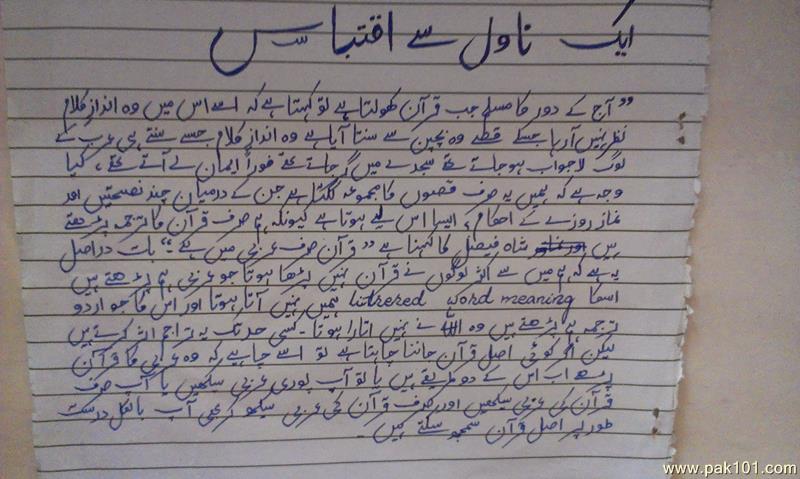 ایک ناول سے اقتباس
”آج کے دور کا مسلم جب قرآن کھولتا ہے تو کہتا ہے کہ اسے اس میں وہ انداز کلام
نظر نہیں آ رہا جسکے قصے وہ بچپن سے سنتا آیا ہے وہ انداز کلام جسے سنتے ہی عرب کے
لوگ لاجواب ہو جاتے تھے سجدے میں گر جاتے تھے فوراً ایمان لے آتے تھے، کیا
وجہ ہے کہ ہمیں یہ صرف قصوں کا مجموعہ لگتا ہے جن کے درمیان چند نصیحتیں اور
نماز روزے کے احکام، ایسا اس لیے ہوتا ہے کیونکہ ہم صرف قرآن کا ترجمہ پڑھتے
ہیں شاہ فیصل کا کہنا ہے ”قرآن صرف عربی میں ہے“ بات دراصل
یہ ہے کہ ہم میں سے اکثر لوگوں نے قرآن نہیں پڑھا ہوتا جو عربی ہم پڑھتے ہیں
اسکا litrered word meaning ہمیں نہیں آتا ہوتا اور اس کا جو اردو
ترجمہ ہم پڑھتے ہیں وہ اللہ نے نہیں اتارا ہوتا۔ کسی حد تک یہ تراجم اثر کرتے ہیں
لیکن اگر کوئی اصل قرآن جاننا چاہتا ہے تو اسے چاہیے کہ وہ عربی کا قرآن
پڑھے اب اس کے دو طریقے ہیں یا تو آپ پوری عربی سیکھیں یا آپ صرف
قرآن کی عربی سیکھیں اور صرف قرآن کی عربی سیکھ کر بھی آپ بالکل درست
طور پر اصل قرآن سمجھ سکتے ہیں۔
www.pak101.com